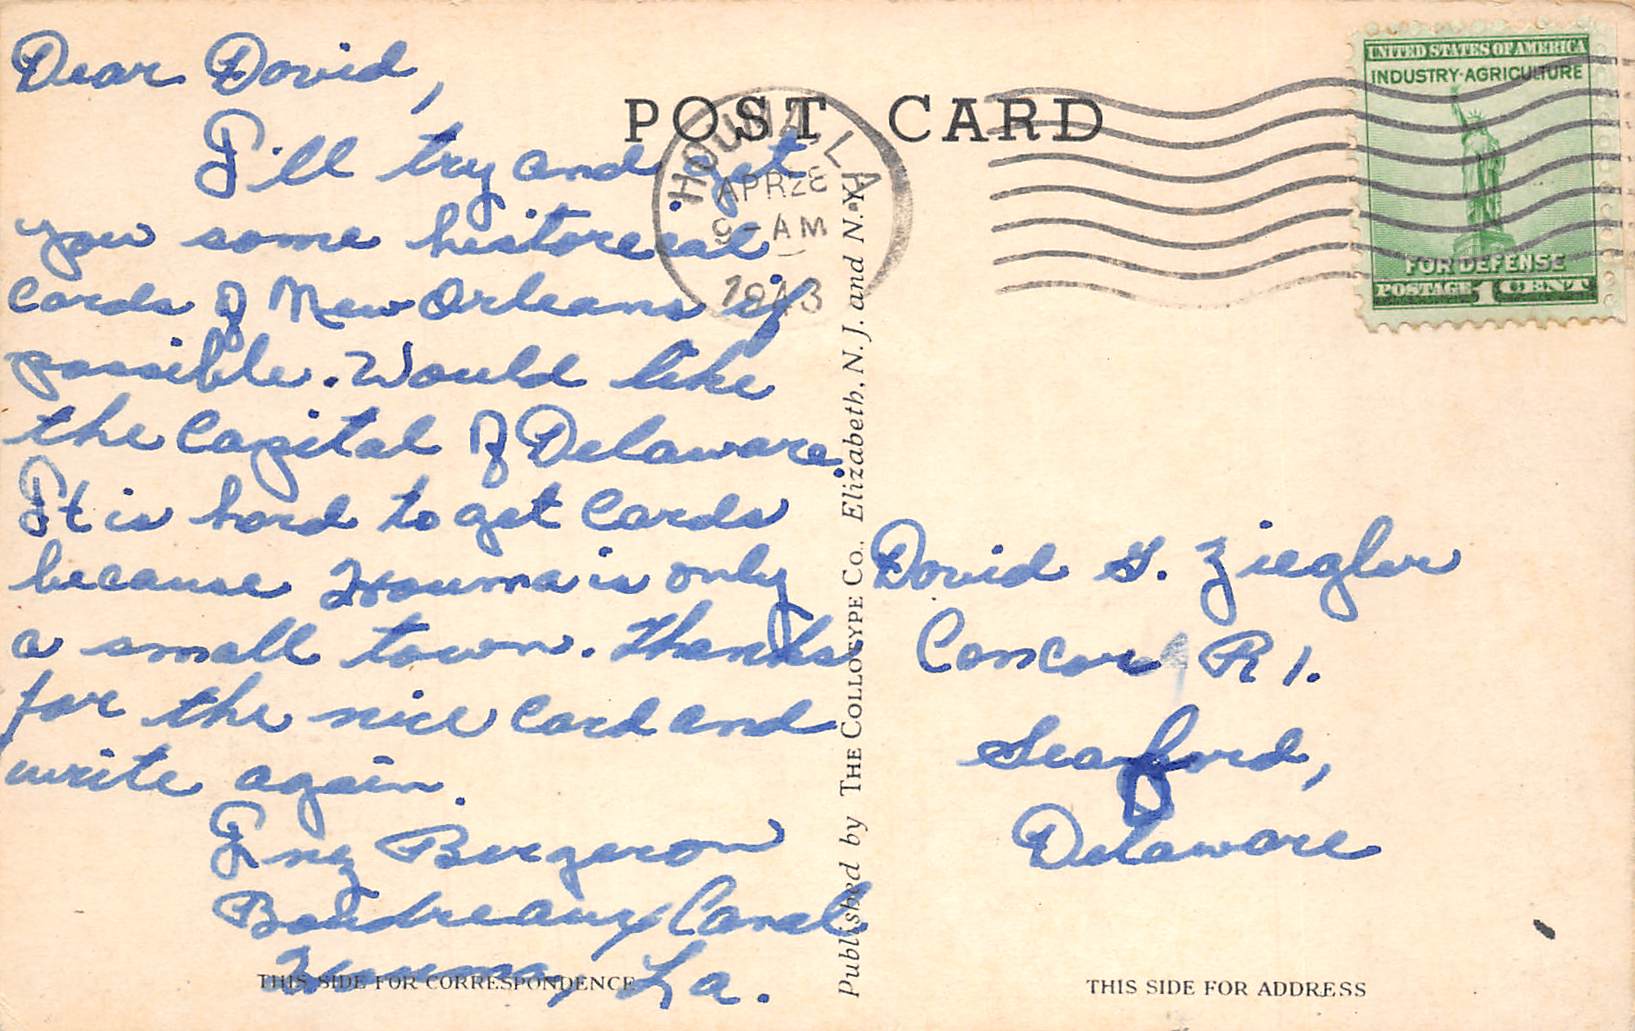 Dear David,
I'll try and get
you some historical
cards of New Orleans if
possible. Would like
the Capital of Delaware.
It is hard to get cards
because Houma is only
a small town. Thanks
for the nice card and
write again.
Inez Bergeron
Boudreaux Canal
Houma, La.
THIS SIDE FOR CORRESPONDENCE
POST CARD
HOUMA, LA.
APR 28
9 - AM
1943
UNITED STATES OF AMERICA
INDUSTRY·AGRICULTURE
FOR DEFENSE
POSTAGE 1 CENT
Published by THE COLLOTYPE CO., Elizabeth, N. J. and N. Y.
David G. Ziegler
Concor R 1.
Seaford,
Delaware
THIS SIDE FOR ADDRESS